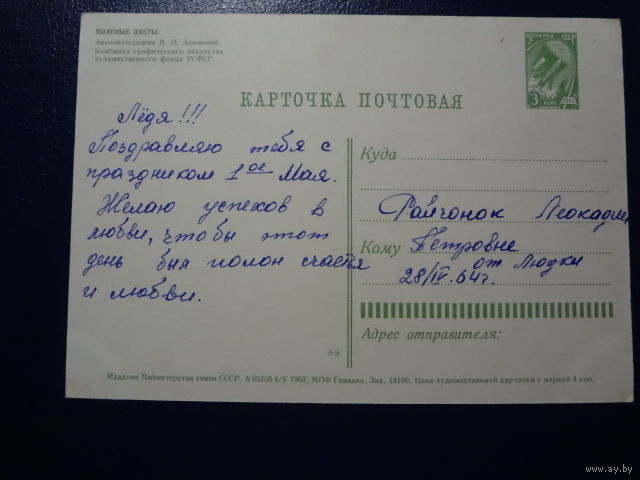 ПОЛЕВЫЕ ЦВЕТЫ.
Автолитография В. П. Алямовой.
Комбинат графического искусства
художественного фонда РСФСР.
3 коп
КАРТОЧКА ПОЧТОВАЯ
Лёдя!!!
Поздравляю тебя с
праздником 1ое Мая.
Желаю успехов в
любви, чтобы этот
день был полон счастя
и любви.
Куда
Райчонок Леокадии
Кому Петровне
от Людки
28/IV.64г.
Адрес отправителя:
**
Издание Министерства связи СССР. А 05258 4/V 1963. МПФ Гознака. Зак. 19190. Цена художественной карточки с маркой 4 коп.
www.ay.by